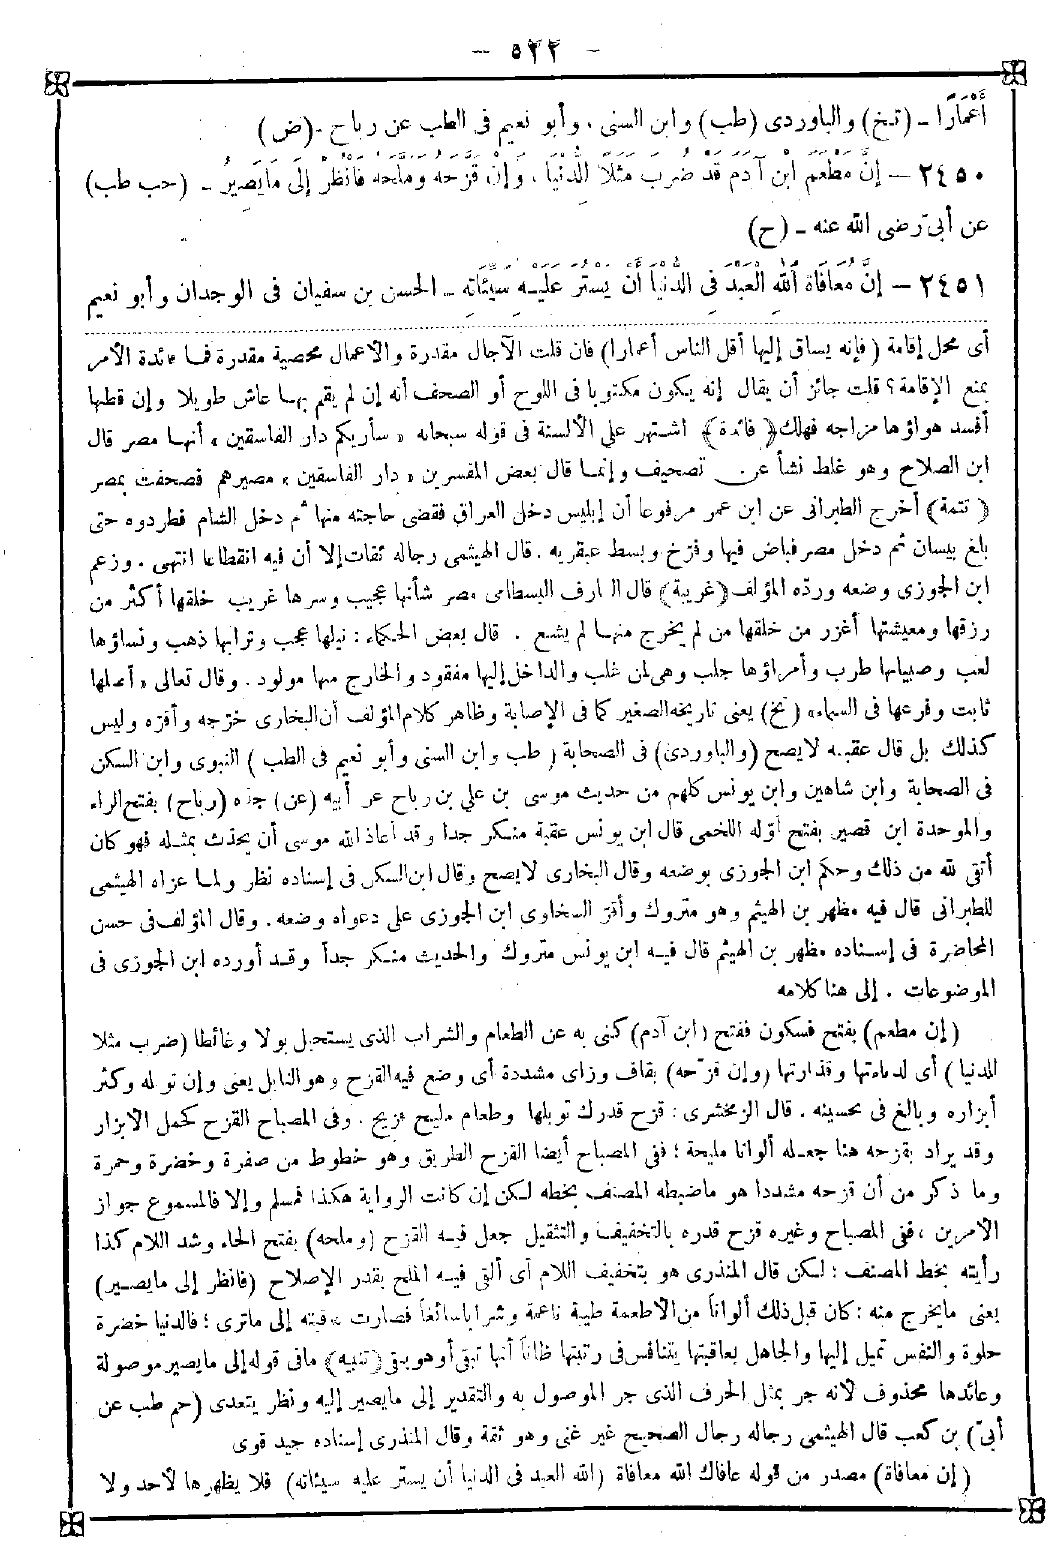 - ٥٢٢ -
أَعْمَارًا - (تخ) والباوردى (طب) وابن السنى ، وأبو نعيم فى الطب عن رباح - (ض)
٢٤٥٠ - إِنَّ مَطْعَمَ ابْنِ آدَمَ قَدْ ضُرِبَ مَثَلًا لِلدُّنْيَا ، وَإِنْ قَزَّحَهُ وَمَلَّحَهُ فَانْظُرْ إِلَى مَا يَصِيرُ - (حب طب)
عن أبىّ رضى الله عنه - (ح)
٢٤٥١ - إِنَّ مُعَافَاةَ اللهِ الْعَبْدَ فِى الدُّنْيَا أَنْ يَسْتُرَ عَلَيْهِ سَيِّئَاتِهِ - الحسن بن سفيان فى الوجدان وأبو نعيم
أى محل إقامة (فإنه يساق إليها أقل الناس أعمارا) فان قلت الآجال مقدرة والاعمال محصية مقدرة فما فائدة الأمر
بمنع الإقامة؟ قلت جائز أن يقال إنه يكون مكتوبا فى اللوح أو الصحف أنه إن لم يقم بها عاش طويلا وإن قطنها
أفسد هواؤها مزاجه فهلك (فائدة) اشتهر على الألسنة فى قوله سبحانه «سأريكم دار الفاسقين» أنها مصر قال
ابن الصلاح وهو غلط نشأ عن تصحيف وإنما قال بعض المفسرين «دار الفاسقين» مصيرهم فصحفت بمصر
(تتمة) أخرج الطبرانى عن ابن عمر مرفوعا أن إبليس دخل العراق فقضى حاجته منها ثم دخل الشام فطردوه حتى
بلغ بيسان ثم دخل مصر فباض فيها وفرّخ وبسط عبقريه . قال الهيثمى رجاله ثقات إلا أن فيه انقطاعا انتهى . وزعم
ابن الجوزى وضعه وردّه المؤلف (غريبة) قال العارف البسطامى مصر شأنها عجيب وسرها غريب خلقها أكثر من
رزقها ومعيشتها أغزر من خلقها من لم يخرج منها لم يشبع . قال بعض الحكماء : نيلها عجب وترابها ذهب ونساؤها
لعب وصبيانها طرب وأمراؤها جلب وهى لمن غلب والداخل إليها مفقود والخارج منها مولود . وقال تعالى «أصلها
ثابت وفرعها فى السماء» (تخ) يعنى تاريخه الصغير كما فى الإصابة وظاهر كلام المؤلف أن البخارى خرّجه وأقرّه وليس
كذلك بل قال عقبه لا يصح (والباوردى) فى الصحابة (طب وابن السنى وأبو نعيم فى الطب) النبوى وابن السكن
فى الصحابة وابن شاهين وابن يونس كلهم من حديث موسى بن على بن رباح عن أبيه (عن) جدّه (رباح) بفتح الراء
والموحدة ابن قصير بفتح أوّله اللخمى قال ابن يونس عقبه منكر جدا وقد أعاذ الله موسى أن يحدّث بمثله فهو كان
أتقى لله من ذلك وحكم ابن الجوزى بوضعه وقال البخارى لا يصح وقال ابن السكن فى إسناده نظر ولما عزاه الهيثمى
للطبرانى قال فيه مظهر بن الهيثم وهو متروك وأقرّ السخاوى ابن الجوزى على دعواه وضعه . وقال المؤلف فى حسن
المحاضرة فى إسناده مظهر بن الهيثم قال فيه ابن يونس متروك والحديث منكر جداً وقد أورده ابن الجوزى فى
الموضوعات . إلى هنا كلامه
(إن مطعم) بفتح فسكون ففتح (ابن آدم) كنى به عن الطعام والشراب الذى يستحيل بولا وغائطا (ضرب مثلا
للدنيا) أى لدناءتها وقذارتها (وإن قزّحه) بقاف وزاى مشددة أى وضع فيه القزح وهو التابل يعنى وإن توبله وكثر
أبزاره وبالغ فى تحسينه . قال الزمخشرى : قزح قدرك توبلها وطعام مليح قزيح . وفى المصباح القزح كحمل الابزار
وقد يراد بقزحه هنا جعله ألوانا مليحة ؛ ففى المصباح أيضا القزح الطريق وهو خطوط من صفرة وخضرة وحمرة
وما ذكر من أن قزحه مشددا هو ماضبطه المصنف بخطه لكن إن كانت الرواية هكذا فمسلم وإلا فالمسموع جواز
الأمرين ، ففى المصباح وغيره قزح قدره بالتخفيف والتثقيل جعل فيه القزح (وملحه) بفتح الحاء وشد اللام كذا
رأيته بخط المصنف : لكن قال المنذرى هو بتخفيف اللام أى ألقى فيه الملح بقدر الإصلاح (فانظر إلى مايصير)
يعنى مايخرج منه : كان قبل ذلك ألواناً من الأطعمة طيبة ناعمة وشرابا سائغاً فصارت عاقبته إلى ماترى ؛ فالدنيا خضرة
حلوة والنفس تميل إليها والجاهل بعاقبتها يتنافس فى رتبتها ظاناً أنها تبقى أو هو يبقى (تنبيه) مافى قوله إلى مايصير موصولة
وعائدها محذوف لأنه جر بمثل الحرف الذى جر الموصول به والتقدير إلى مايصير إليه ونظر يتعدى (حم طب عن
أبىّ) بن كعب قال الهيثمى رجاله رجال الصحيح غير غنى وهو ثقة وقال المنذرى إسناده جيد قوى
(إن معافاة) مصدر من قوله عافاك الله معافاة (الله العبد فى الدنيا أن يستر عليه سيئاته) فلا يظهرها لأحد ولا